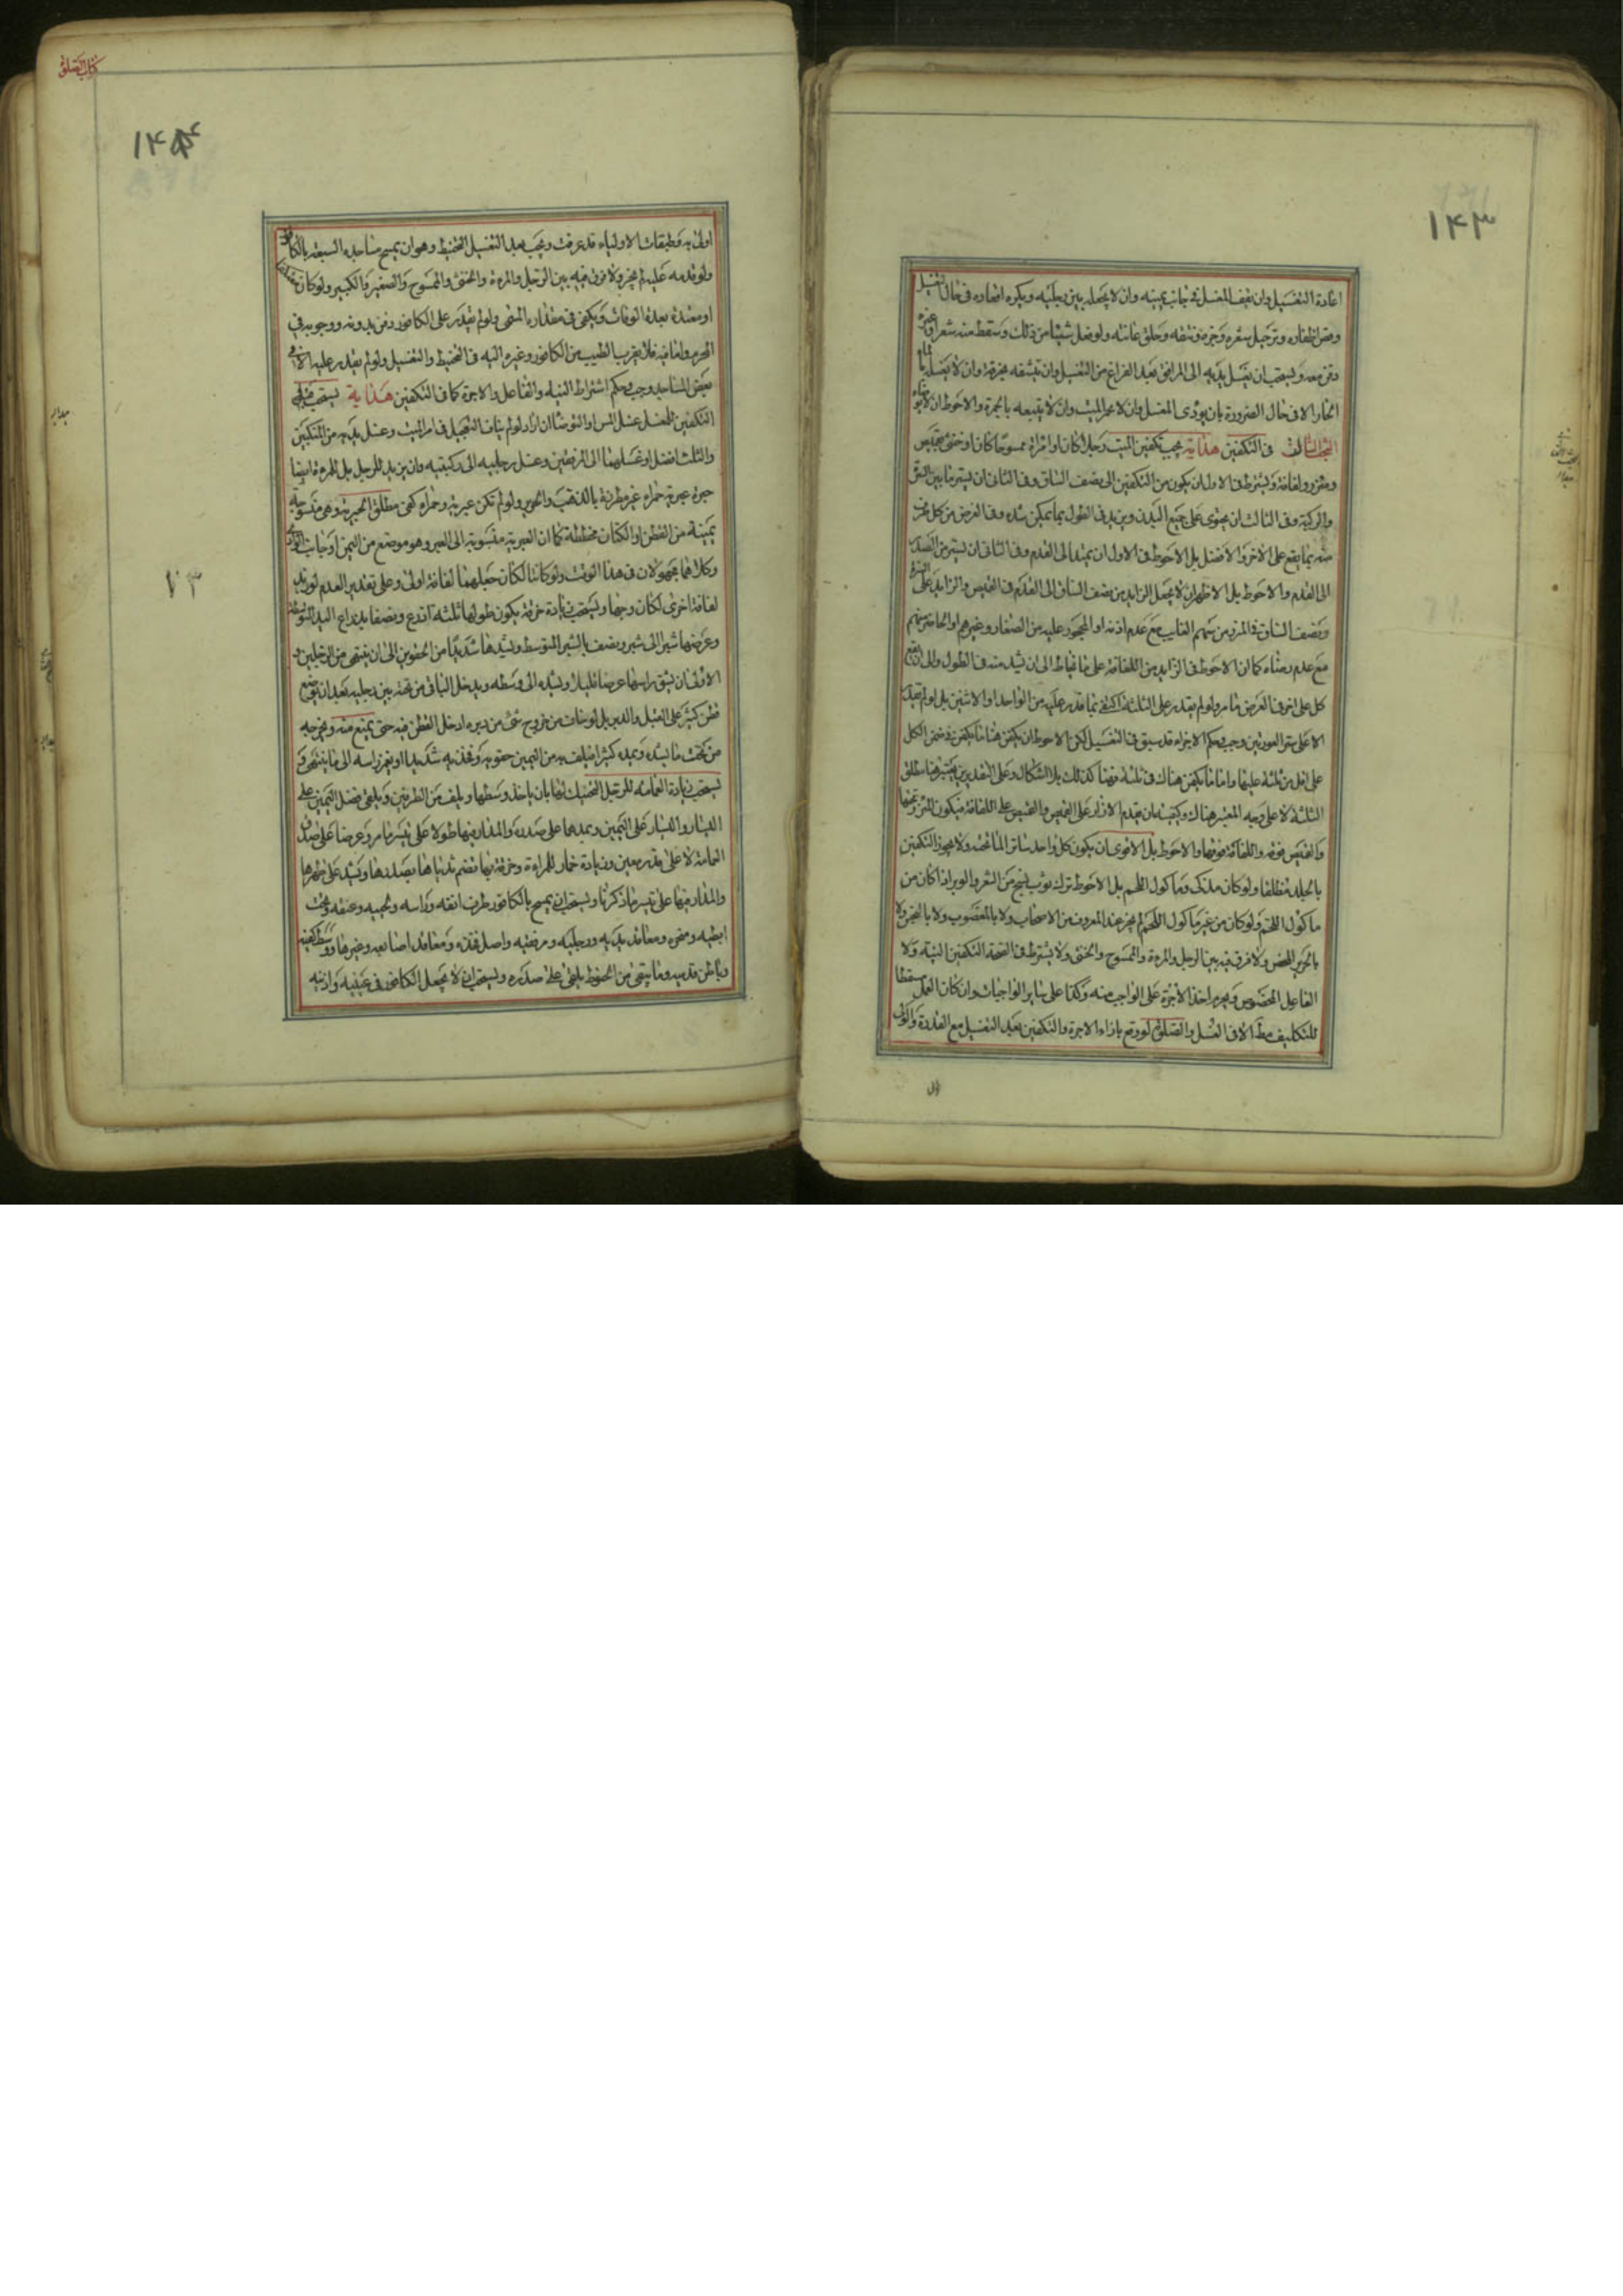 ۱۴۳
اعادة التغسيل وان يقف المغسل في جانب يمينه وان لا يجعله بين رجليه ويكره اقعاده في حال التغسيل
وقص اظفاره وترجيل شعره وجزه ونتفه وحلق عانته ولو فعل شيئا من ذلك وسقط منه شعر او غيره
دفن معه ويستحب ان يغسل يديه الى المرافق بعد الفراغ من التغسيل وان ينشفه بخرقة وان لا يغسل بالماء
الحار الا في حال الضرورة بان يؤذى المغسل وان لا يجمر الميت وان لا يتبعه بالمجمرة والاحوط ان لا
المبحث الثالث في التكفين هداية يجب تكفين الميت رجلا كان او امراة ممسوحا كان او خنثى بقميص
ومئزر ولفافة ويشترط في الاول ان يكون من المنكبين الى نصف الساق وفي الثاني ان يستر ما بين السرة
والركبة وفي الثالث ان يحتوى على جميع البدن ويزيد في الطول بما يمكن شده وفي العرض من كل طرف
منه بما يقع على الاخر والافضل بل الاحوط في الاول ان يمتد الى القدم وفي الثاني ان يستر من الصدر
الى القدم والاحوط بل الاظهر ان لا يجعل الزايد من نصف الساق الى القدم في القميص والزايد على السرة
ونصف الساق في المئزر من سهم الغايب مع عدم اذنه او المحجور عليه من الصغار وغيرهم او الحاضر منهم
مع عدم رضاه كما ان الاحوط في الزايد من اللفافة على ما يخاط الى ان يشد منه في الطول والى ان يقع
كل على اخر في العرض ما مر ولو لم يقدر على الثلثة اكتفى بما قدر عليه من الواحد او الاثنين بل لو لم يقدر
الا على ستر العورتين وجب وحكم الاجزاء قد سبق في التغسيل لكن الاحوط ان يكفن هنا ما يكفن في فرض الكل
على اقل من ثلثة عليها واما ما يكفن هناك في ثلثة فهنا كذلك بلا اشكال وعلى التقديرين يعتبر هنا مطلق
الثلثة لا على وجه المعتبر هناك وكيفيته ان يقدم الازار على القميص والقميص على اللفافة فيكون المئزر تحتها
والقميص فوقه واللفافة فوقها والاحوط بل الاقوى ان يكون كل واحد ساترا لما تحته ولا يجوز التكفين
بالجلد مطلقا ولو كان مذكى وماكول اللحم بل الاحوط ترك ثوب ينسج من الشعر والوبر اذا كان من
ماكول اللحم ولو كان من غير ماكول اللحم لم يجز عند المعروف من الاصحاب ولا بالمغصوب ولا بالنجس ولا
بالحرير المحض ولا فرق فيه بين الرجل والمرءة والممسوح والخنثى ولا يشترط في الصحة التكفين النية ولا
الفاعل المخصوص ويحرم اخذ الاجرة على الواجب منه وكذا على ساير الواجبات وان كان العمل مسقطا
للتكليف مطلقا الا في الغسل والصلوة لو وقع بازاء الاجرة والتكفين بعد التغسيل مع القدرة والولى
كتاب الصلوة
۱۴۴
اولى به وطبقات الاولياء قد عرفت ويجب بعد التغسيل التحنيط وهو ان يمسح مساجده السبعة بالكافور
ولو قدمه عليه لم يجز ولا فرق فيه بين الرجل والمرءة والخنثى والممسوح والصغير والكبير ولو كان
او معتدة بعدة الوفات ويكفى في مقداره المسمى ولو لم يقدر على الكافور دفن بدونه ووجوبه في
المحرم واما فيه فلا يقرب الطيب من الكافور وغيره اليه في التحنيط والتغسيل ولو لم يقدر عليه الا في
بعض المساجد وجب وحكم اشتراط النية والفاعل والاجرة كما في التكفين هداية يستحب قبل
التكفين للمغسل غسل المس او التوضأ ان اراد ولو لم يناف التعجيل في امر الميت وغسل يديه من المنكبين
والثلث افضل او غسلهما الى المرفقين وغسل رجليه الى ركبتيه وان يزيد للرجل بل المرءة ايضا
حبرة عبرية حمراء غير مطرزة بالذهب والحرير ولو لم تكن عبرية وحمراء كفى مطلق الحبرية وهى منسوجة
يمنية من القطن او الكتان مخططة كما ان العبرية منسوبة الى العبر وهو موضع من اليمن او جانب الوادى
وكلاهما مجهولان في هذا الوقت ولو كانتا لكان جعلهما لفافة اولى وعلى تقدير العدم لو زيد
لفافة اخرى لكان وجها ويستحب زيادة خرقة يكون طولها ثلثة اذرع ونصفا بذراع اليد المتوسطة
وعرضها شبرا الى شبر ونصف بالشبر المتوسط ويشدها شديدا من الحقوين الى ان ينتهى من الرجلين و
الاولى ان يشق راسها عرضا قليلا ويشده الى وسطه ويدخل الباقى من تحته بين رجليه بعد ان يوضع
قطن كثير على القبل والدبر بل لو خاف من خروج شئ من دبره ادخل القطن فيه حتى يمنع منه ويخرجه
من تحت ما يشده ويمده كثيرا فيلف به من اليمين حقويه وفخذيه شديدا او يغرز راسه الى ما ينتهى و
يستحب زيادة العمامة للرجل المحنك لها بان ياخذ وسطها ويلف من الطرفين ويلقى فضل اليمين على
اليسار واليسار على اليمين ويمدهما على صدره والمدار فيها طولا على تيسر ما مر وعرضا على صدق
العمامة لا على قدر معين وزيادة خمار للمراءة وخرقة فيها تضم ثدياها بصدرها ويشد على ظهرها
والمدار فيها على تيسر ما ذكرنا ويستحب ان يمسح بالكافور طرف انفه وراسه ولحيته وعنقه وتحت
ابطيه ومنحره ومعاقد يديه ورجليه ومرفقيه واصل فخذه ومعاقد اصابعه وغيرها ووسط كفيه
وباطن قدميه وما يبقى من الحنوط يلقى على صدره ويستحب ان لا يجعل الكافور في عينيه واذنيه
۷۳